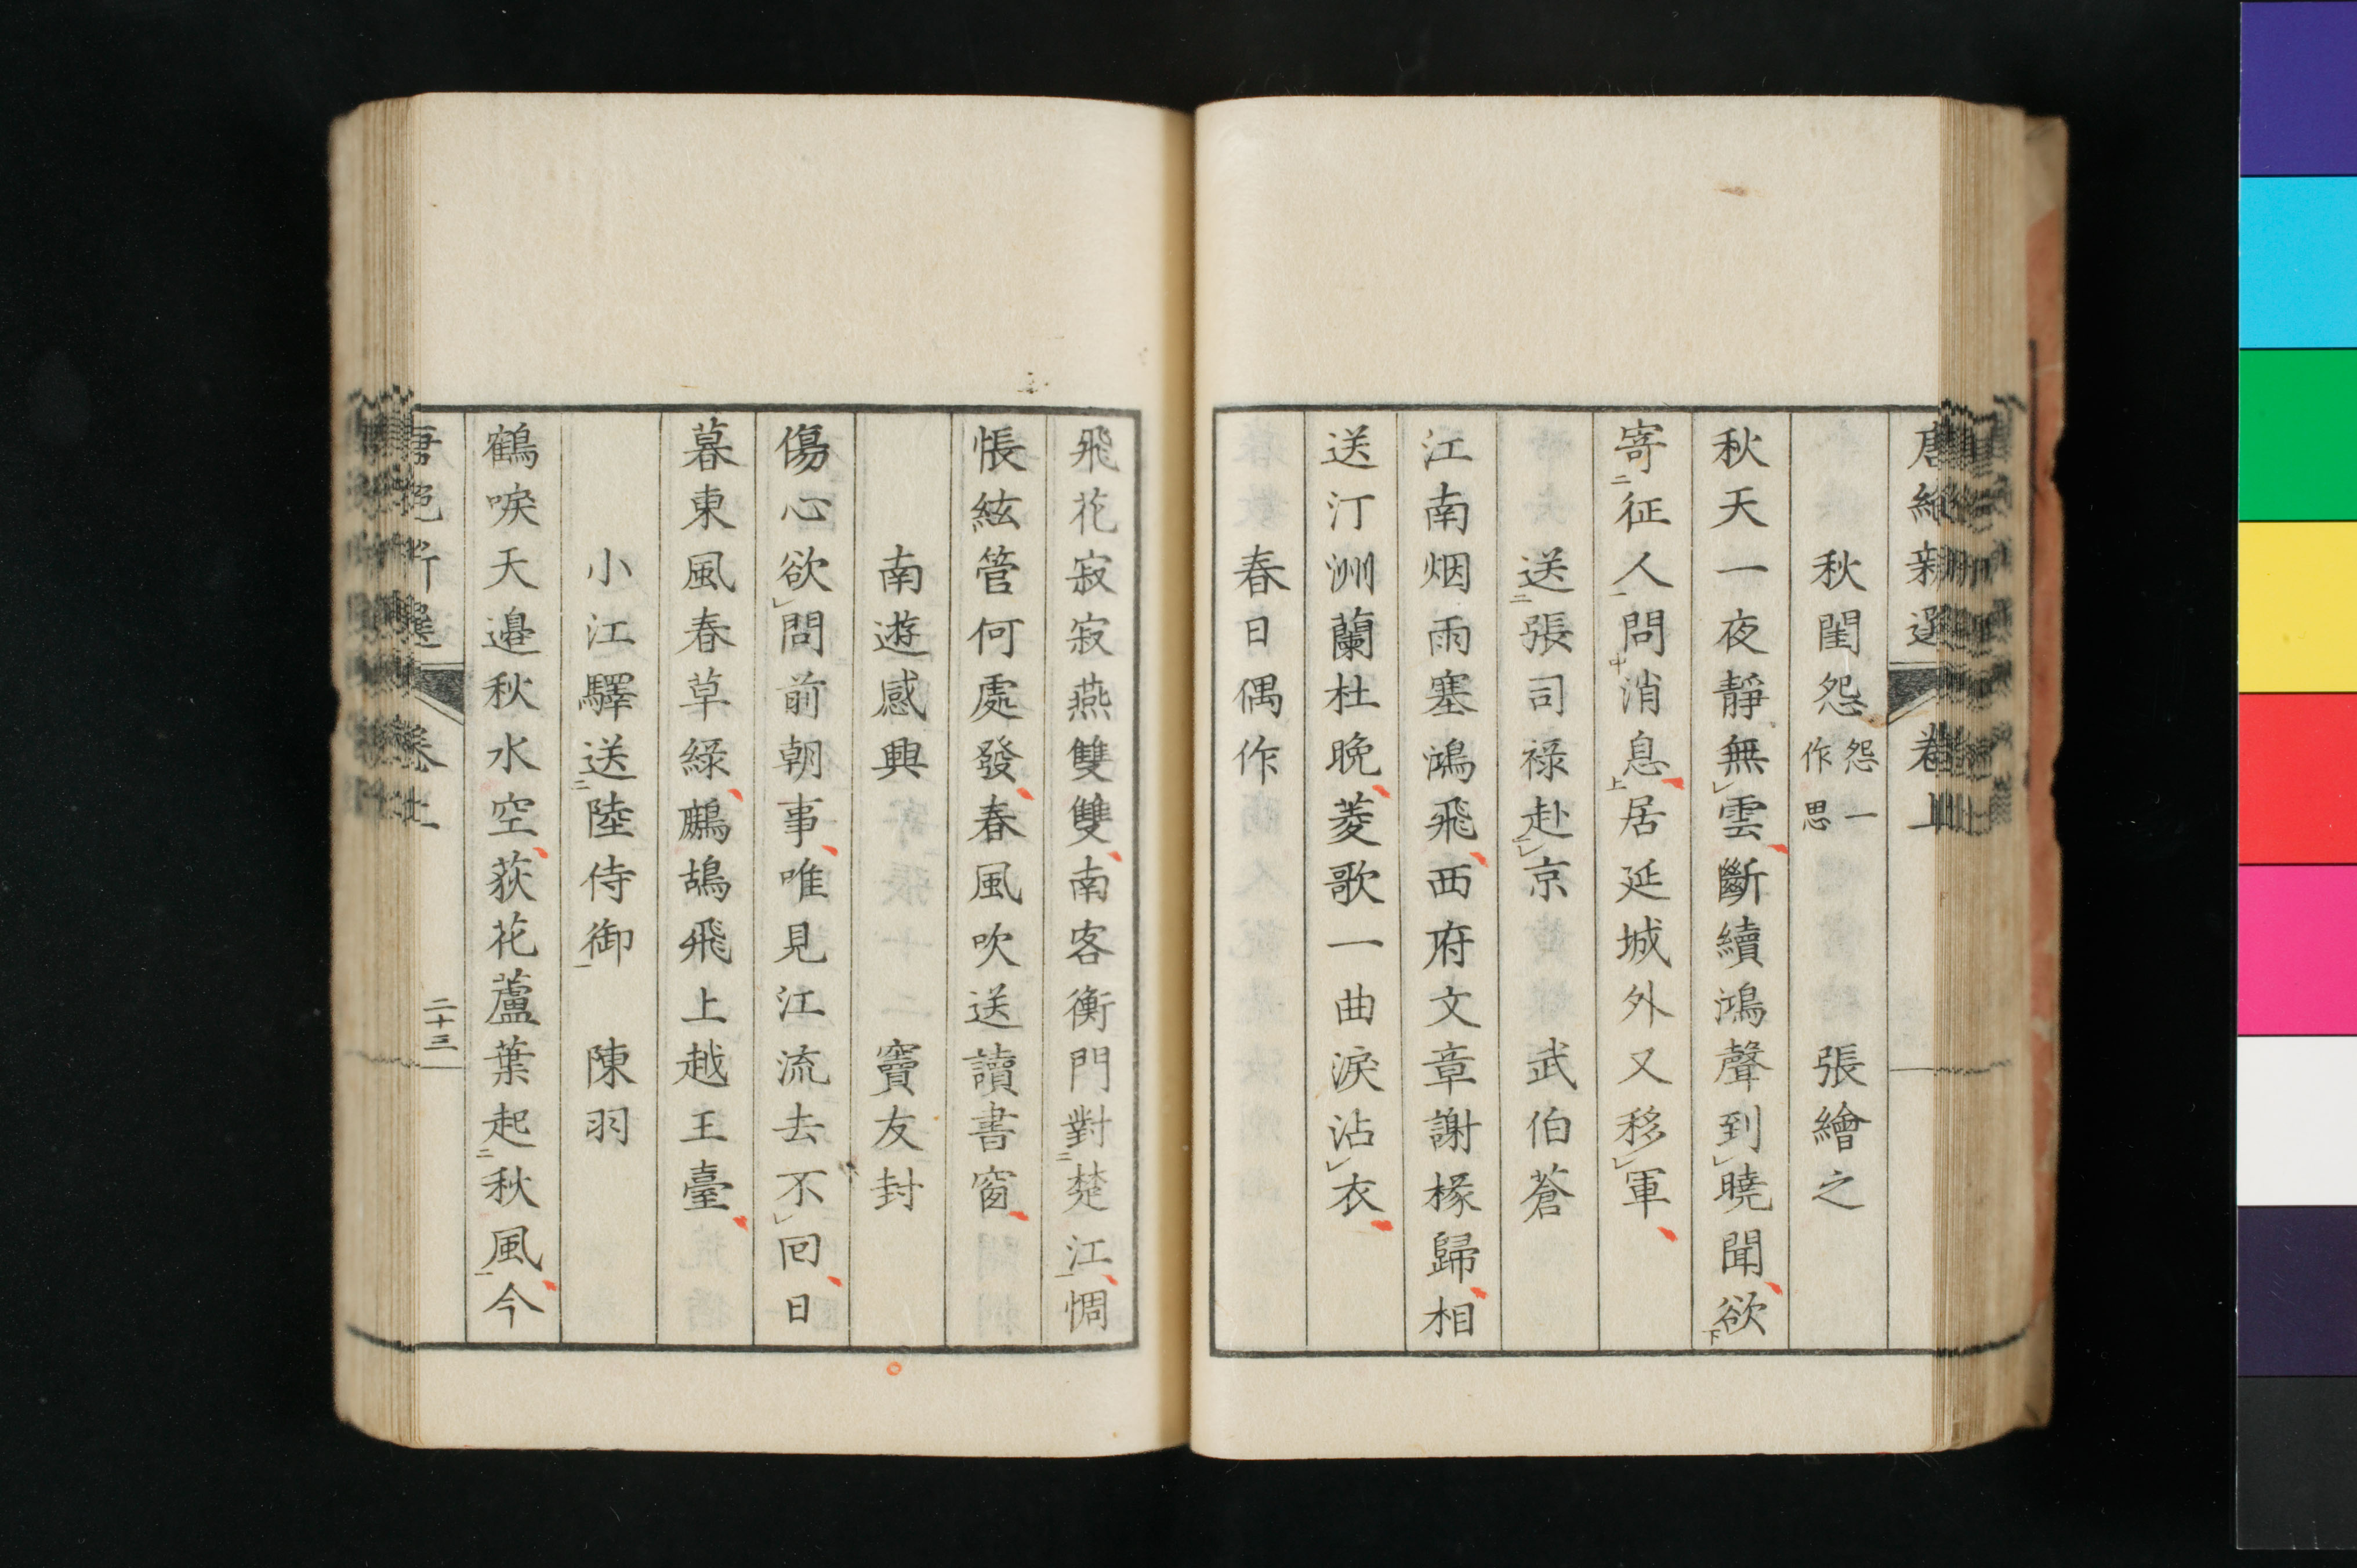 唐絶新選 卷上
秋閨怨 怨一作思 張繪之
秋天一夜靜無雲斷續鴻聲到曉聞欲
寄征人問消息居延城外又移軍
送張司祿赴京 武伯蒼
江南烟雨塞鴻飛西府文章謝掾歸相
送汀洲蘭杜晩菱歌一曲淚沾衣
春日偶作
飛花寂寂燕雙雙南客衡門對楚江惆
悵絃管何處發春風吹送讀書窗
南遊感興 竇友封
傷心欲問前朝事唯見江流去不囘日
暮東風春草綠鷓鴣飛上越王臺
小江驛送陸侍御 陳羽
鶴唳天邊秋水空荻花蘆葉起秋風今
唐絶新選 卷上 二十三